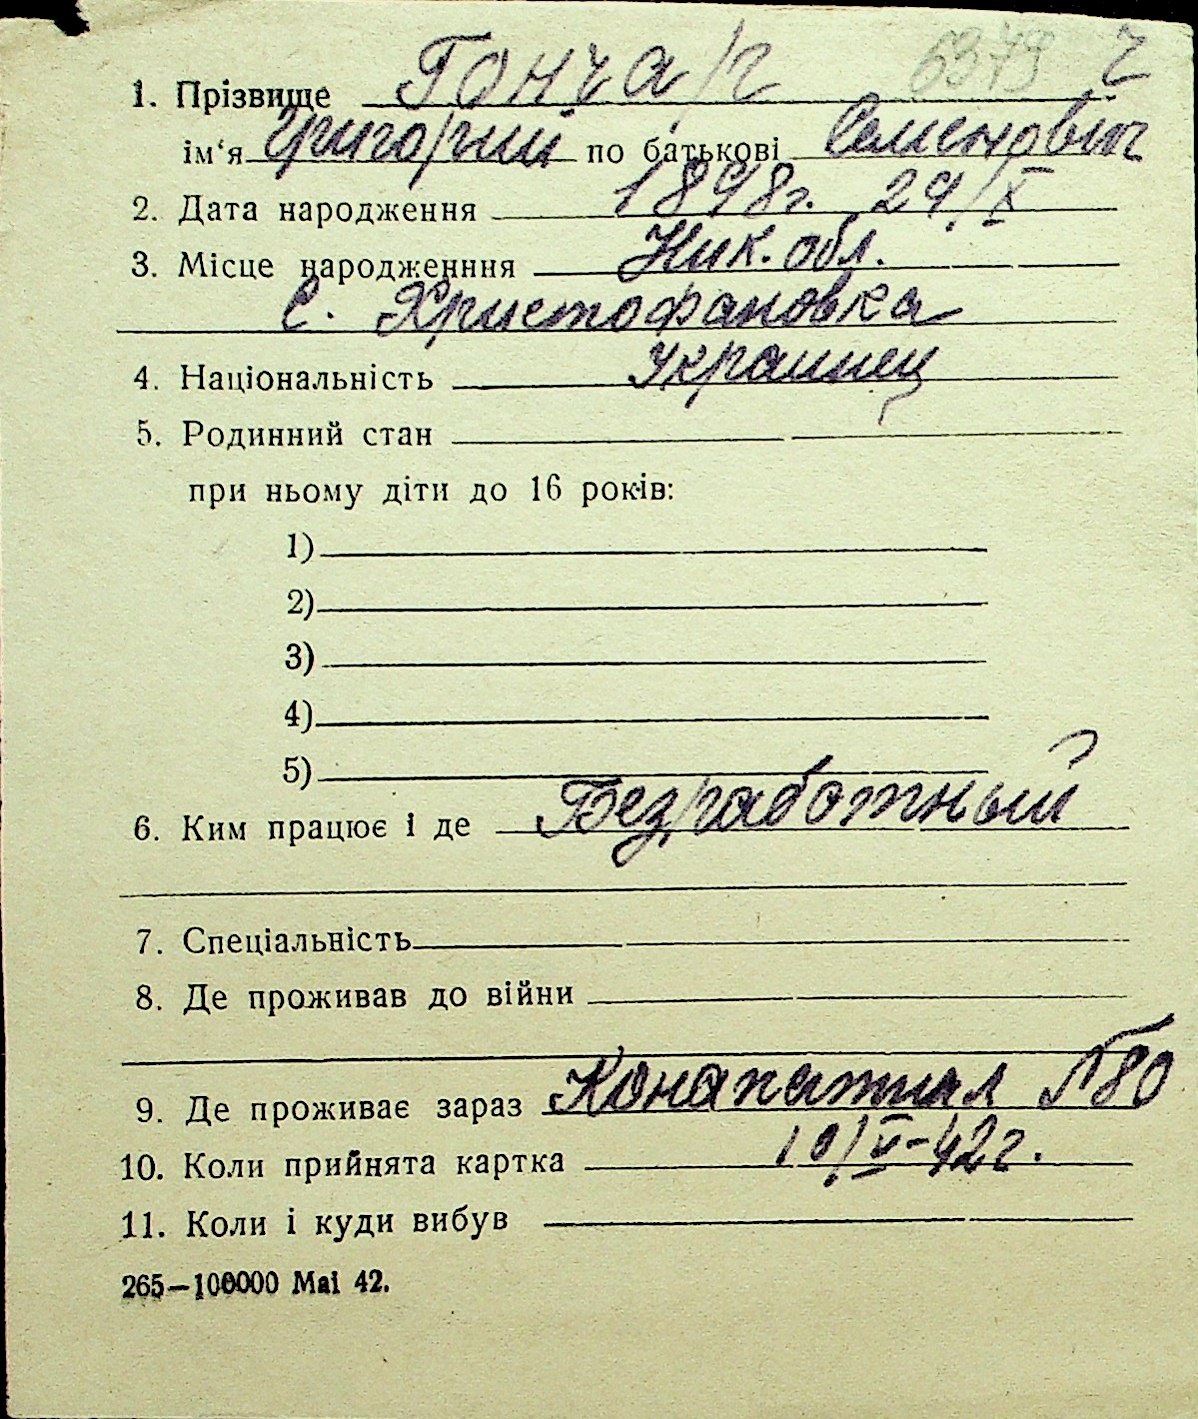 6379 ч
1. Прізвище Гончар
ім‘я Григорий по батькові Семенович
2. Дата народження 1898г. 29/X
3. Місце народженння Ник. обл.
С. Христофановка
4. Національність Украинец
5. Родинний стан
при ньому діти до 16 років:
1)
2)
3)
4)
5)
6. Ким працює і де Безработный
7. Спеціальність
8. Де проживав до війни
9. Де проживає зараз Канатная №80
10. Коли прийнята картка 10/V-42г.
11. Коли і куди вибув
265—100000 Mai 42.